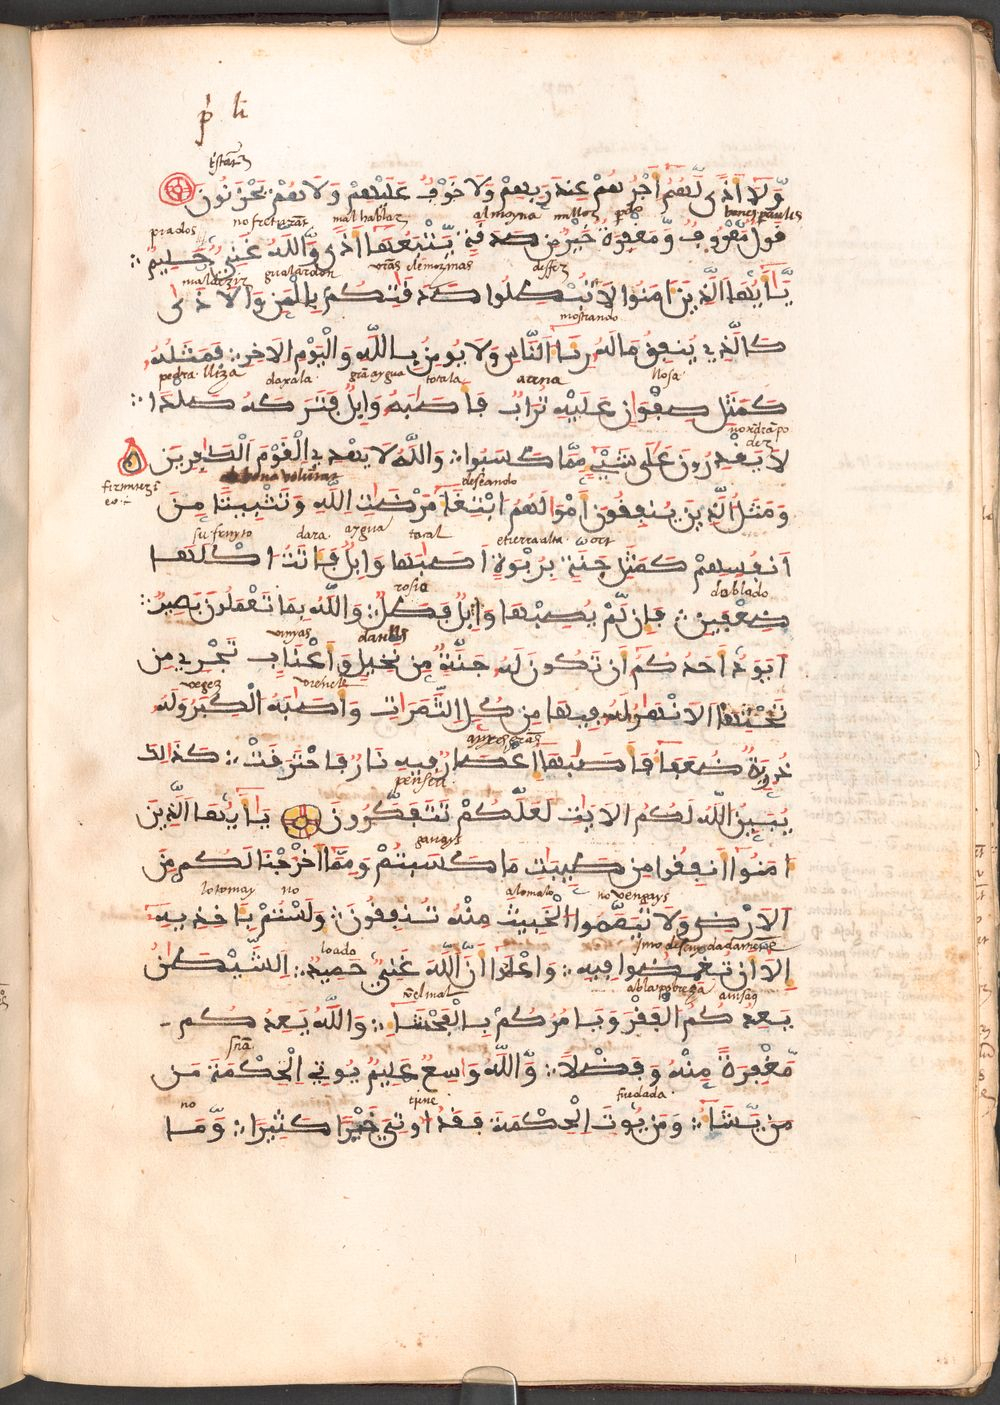 وَّلَا أَذًى لَّهُمُ أَجْرُهُمْ عِندَ رَبِّهِمْ وَلَا خَوْفٌ عَلَيْهِمْ وَلَا هُمْ يَحْزَنُونَ
prados no fret mal hablar almoyna millor
قَوْلٌ مَّعْرُوفٌ وَّمَغْفِرَةٌ خَيْرٌ مِّن صَدَقَةٍ يَّتْبَعُهَا أَذًى وَّاللَّهُ غَنِيٌّ حَلِيمٌ
maldezir gualardon vr̃as elemozinas deffez
يَّأَيُّهَا الَّذِينَ ءَامَنُوا لَا تُبْطِلُوا صَدَقَاتِكُم بِالْمَنِّ وَالْأَذَى
mostrando
كَالَّذِي يُنفِقُ مَالَهُ رِئَاءَ النَّاسِ وَلَا يُومِنُ بِاللَّهِ وَالْيَوْمِ الْآخِرِ فَمَثَلُهُ
pedra lliza daxala grã aygua tocala arena llosa
كَمَثَلِ صَفْوَانٍ عَلَيْهِ تُرَابٌ فَأَصَابَهُ وَابِلٌ فَتَرَكَهُ صَلْدًا
لَا يَقْدِرُونَ عَلَى شَيْءٍ مِّمَّا كَسَبُوا وَاللَّهُ لَا يَهْدِي الْقَوْمَ الْكَافِرِينَ
bona voluntat deseando
وَمَثَلُ الَّذِينَ يُنفِقُونَ أَمْوَالَهُمُ ابْتِغَاءَ مَرْضَاتِ اللَّهِ وَتَثْبِيتًا مِّنَ
su fruyto dara aygua tocal e tierra alta ort
أَنفُسِهِمْ كَمَثَلِ جَنَّةٍ بِرُبْوَةٍ أَصَابَهَا وَابِلٌ فَآتَتُ أُكْلَهَا
rosio doblado
ضِعْفَيْنِ فَإِن لَّمْ يُصِبْهَا وَابِلٌ فَطَلٌّ وَاللَّهُ بِمَا تَعْمَلُونَ بَصِيرٌ
vinyas
أَيَوَدُّ أَحَدُكُمُ أَن تَكُونَ لَهُ جَنَّةٌ مِّن نَّخِيلٍ وَأَعْنَابٍ تَجْرِي مِن
vegez
تَحْتِهَا الْأَنْهَارُ لَهُ فِيهَا مِن كُلِّ الثَّمَرَاتِ وَأَصَابَهُ الْكِبَرُ وَلَهُ
ذُرِّيَّةٌ ضُعَفَاءُ فَأَصَابَهَا إِعْصَارٌ فِيهِ نَارٌ فَاحْتَرَقَتْ كَذَلِكَ
penseu
يُبَيِّنُ اللَّهُ لَكُمُ الْآيَاتِ لَعَلَّكُمْ تَتَفَكَّرُونَ يَأَيُّهَا الَّذِينَ
ganays
ءَامَنُوا أَنفِقُوا مِن طَيِّبَاتِ مَا كَسَبْتُمْ وَمِمَّا أَخْرَجْنَا لَكُم مِّنَ
lo tomay no alo malo no vengays
الْأَرْضِ وَلَا تَيَمَّمُوا الْخَبِيثَ مِنْهُ تُنفِقُونَ وَلَسْتُم بِآخِذِيهِ
loado sino descuydadamente
إِلَّا أَن تُغْمِضُوا فِيهِ وَاعْلَمُوا أَنَّ اللَّهَ غَنِيٌّ حَمِيدٌ الشَّيْطَانُ
el mal a la pobreza
يَعِدُكُمُ الْفَقْرَ وَيَامُرُكُمْ بِالْفَحْشَاءِ وَاللَّهُ يَعِدُكُم
مَّغْفِرَةً مِّنْهُ وَفَضْلًا وَّاللَّهُ وَاسِعٌ عَلِيمٌ يُوتِي الْحِكْمَةَ مَن
no fue dada
مَن يَّشَاءُ وَمَن يُوتَ الْحِكْمَةَ فَقَدُ أُوتِيَ خَيْرًا كَثِيرًا وَّمَا